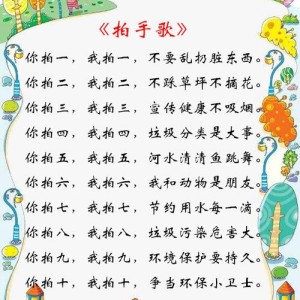 《拍手歌》
你拍一，我拍一，不要乱扔脏东西。
你拍二，我拍二，不踩草坪不摘花。
你拍三，我拍三，宣传健康不吸烟。
你拍四，我拍四，垃圾分类是大事。
你拍五，我拍五，河水清清鱼跳舞。
你拍六，我拍六，我和动物是朋友。
你拍七，我拍七，节约用水每一滴。
你拍八，我拍八，垃圾污染危害大。
你拍九，我拍九，环境保护要持久。
你拍十，我拍十，争当环保小卫士。